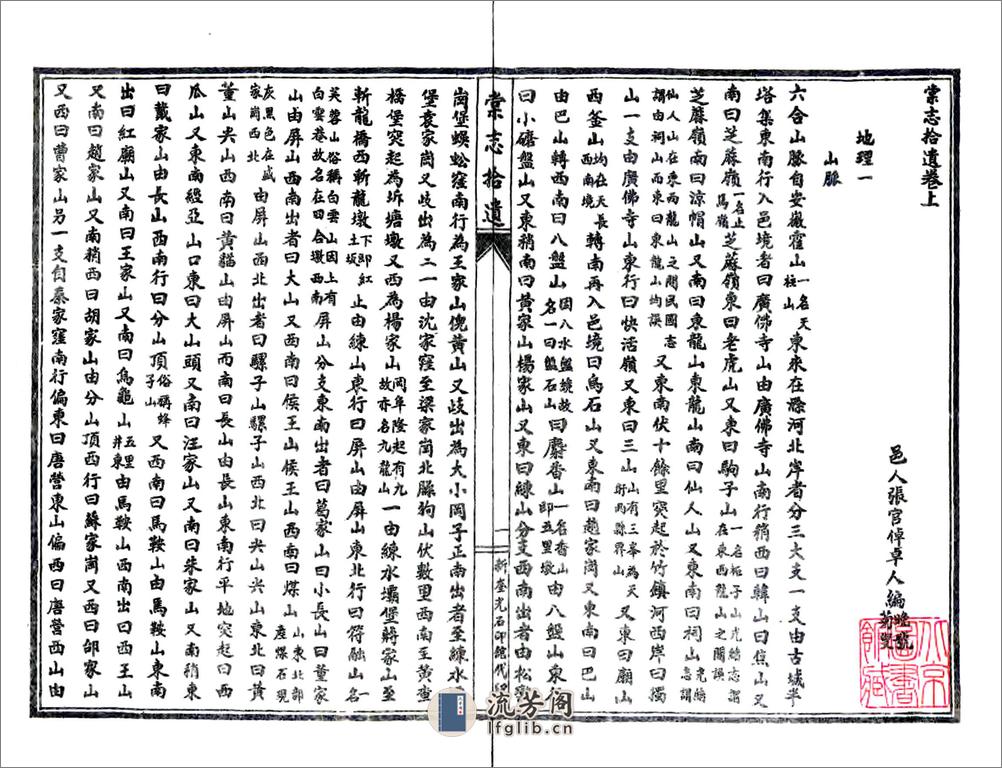 棠志拾遺卷上
邑人張官倬卓人編 晚號菊叟
地理一
山脈
六合山脈自安徽霍山一名天柱山東來在滁河北岸者分三大支一支由古城半
塔集東南行入邑境者曰廣佛寺山由廣佛寺山南行稍西曰韓山曰焦山又
南曰芝蔴嶺一名止馬嶺芝蔴嶺東曰老虎山又東曰駒子山一名梔子山光緒志謂在東西龍山之間誤
芝蔴嶺南曰涼帽山又南曰東龍山東龍山南曰仙人山又東南曰祠山光緒志謂
仙人山在東西龍山之間民國志謂由祠山而東曰東龍山均誤又東南伏十餘里突起於竹鎮河西岸曰獨
山一支由廣佛寺山東行曰快活嶺又東曰三山山有三峯為天盱兩縣界山又東曰廟山
西釜山均在天長西南境轉南再入邑境曰烏石山又東南曰趙家岡又東南曰巴山
由巴山轉西南曰八盤山因八水盤繞故名一曰盤石山曰麝香山一名香山即五里墩由八盤山東
曰小磨盤山又東稍南曰黃家山楊家山又東曰練山分支西南出者由松
棠志拾遺
一
新奎光石印館代印
崗堡蜈蚣窪南行為王家山傀黃山又歧出為大小岡子正南出者至練水
堡袁家崗又歧出為二一由沈家窪至梁家崗北臊狗山伏數里西南至黃壺
橋堡突起為坼塘墩又西為楊家山岡阜隆起有九故亦名九龍山一由練水壩堡蔣家山至
斬龍橋西斬龍墩下即紅土壩止由練山東行曰屏山由屏山東北行曰符融山一名
芙蓉山俗稱白雲山因上有白雲巷故名在四合墩西南屏山分支東南出者曰葛家山曰小長山曰董家
山由屏山西南出者曰大山又西南曰侯王山侯王山西南曰煤山山東北部產煤石現
灰黑色在盛家崗西北由屏山西北出者曰騾子山騾子山西北曰尖山尖山東北曰黃
董山尖山西南曰黃貓山由屏山而南曰長山由長山東南行平地突起曰西
瓜山又東南經亞山口東曰大山頭又南曰汪家山又南曰朱家山又南稍東
曰戴家山由長山西南行曰分山頂俗稱蜂子山又西南曰馬鞍山由馬鞍山東南
出曰紅廟山又南曰王家山又南曰烏龜山五里井東由馬鞍山西南出曰西王山
又南曰趙家山又南稍西曰胡家山由分山頂西行曰蘇家崗又西曰邰家山
又西曰曹家山另一支自秦家窪南行偏東曰唐營東山偏西曰唐營西山由
流芳阁
lfglib.cn